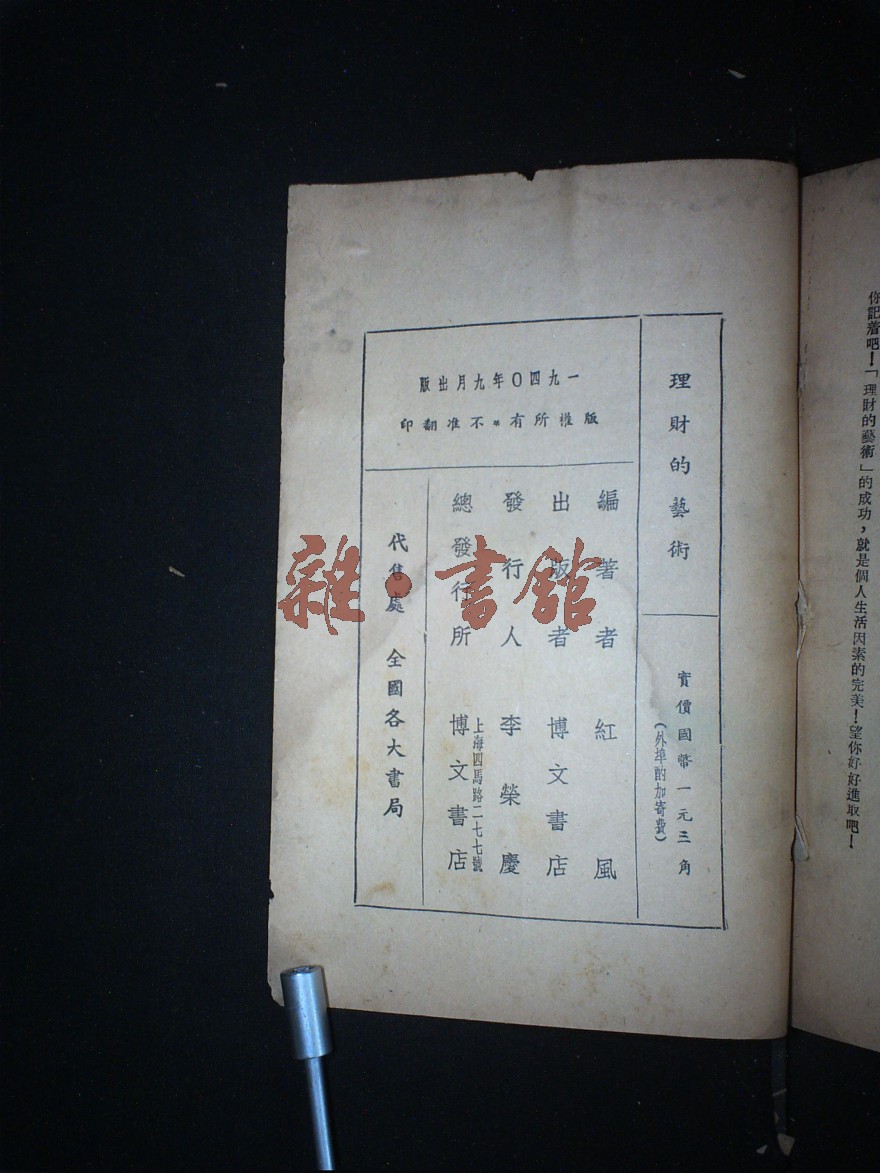 你記着吧！「理財的藝術」的成功，就是個人生活因素的完美！望你好好進取吧！
理財的藝術
實價國幣一元三角
（外埠酌加寄費）
一九四〇年九月出版
版權所有＊不准翻印
編著者　紅風
出版者　博文書店
發行人　李榮慶
總發行所　上海四馬路二七七號
博文書店
代售處　全國各大書局
雜·書館